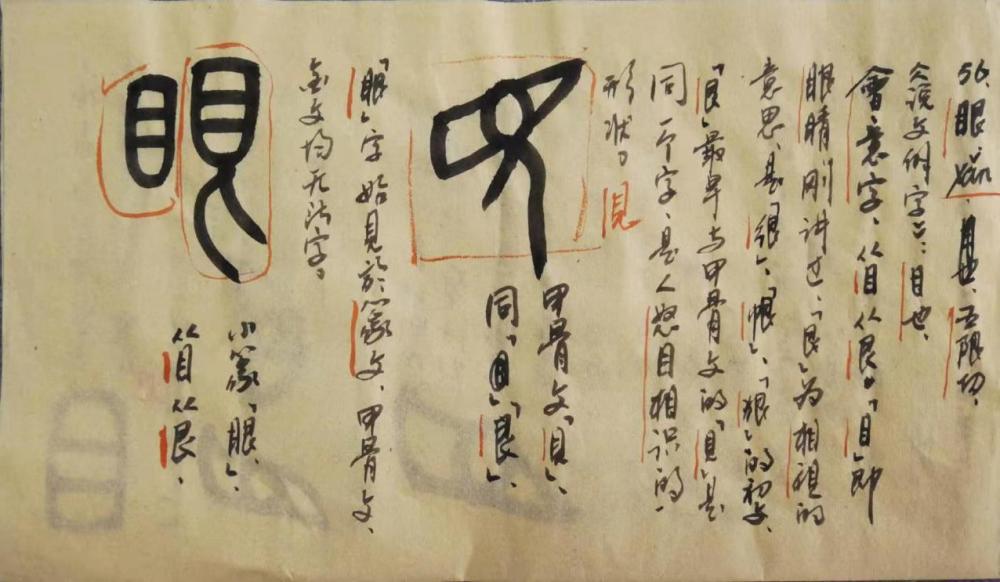 56.眼.
目也、五限切、
《说文例字》：目也、
會意字、从目从艮。「目」即
眼睛刚讲过、「艮」为相视的
意思、是「很」、「恨」、「狠」的初文、
「艮」最早与甲骨文的「見」是
同一个字、是人怒目相识的
形状。見
甲骨文「見」、
同「目」「艮」、
「眼」字始見於篆文、甲骨文、
金文均无此字。
小篆「眼」、
从目从艮、
眼